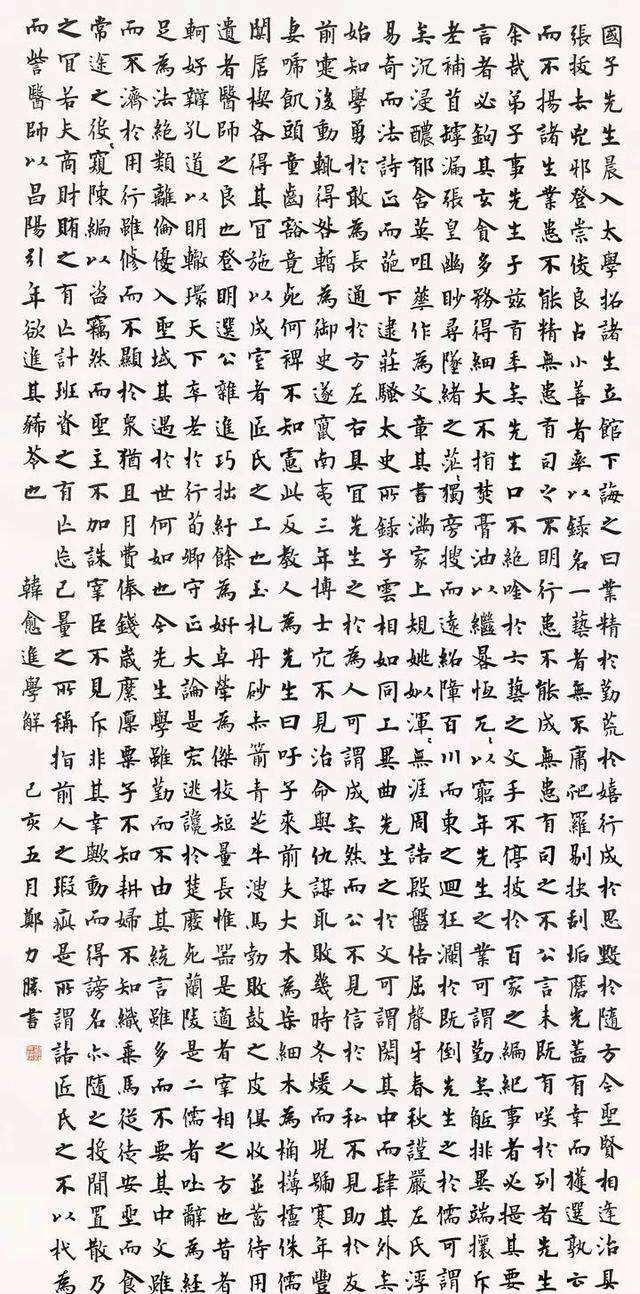 國子先生晨入太學招諸生立館下誨之曰業精於勤荒於嬉行成於思毀於隨方今聖賢相逢治具
張拔去兇邪登崇俊良占小善者率以錄名一藝者無不庸爬羅剔抉刮垢磨光蓋有幸而獲選孰云
而不揚諸生業患不能精無患有司之不明行患不能成無患有司之不公言未既有咲於列者先生
余哉弟子事先生于茲有年矣先生口不絕吟於六藝之文手不停披於百家之編紀事者必提其要
言者必鈎其玄貪多務得細大不捐焚膏油以繼晷恆兀以窮年先生之業可謂勤矣觝排異端攘斥
老補苴罅漏張皇幽眇尋墜緒之茫獨旁搜而遠紹障百川而東之迴狂瀾於既倒先生之於儒可謂
矣沉浸醲郁含英咀華作為文章其書滿家上規姚姒渾無涯周誥殷盤佶屈聱牙春秋謹嚴左氏浮
易奇而法詩正而葩下逮莊騷太史所錄子雲相如同工異曲先生之於文可謂閎其中而肆其外矣
始知學勇於敢為長通於方左右具宜先生之於為人可謂成矣然而公不見信於人私不見助於友
前疐後動輒得咎暫為御史遂竄南夷三年博士冗不見治命與仇謀取敗幾時冬煖而兒號寒年豐
妻啼飢頭童齒豁竟死何裨不知慮此反教人為先生曰吁子來前夫大木為杗細木為桷欂櫨侏儒
闑扂楔各得其宜施以成室者匠氏之工也玉札丹砂赤箭青芝牛溲馬勃敗鼓之皮俱收並蓄待用
遺者醫師之良也登明選公雜進巧拙紆餘為妍卓犖為傑校短量長惟器是適者宰相之方也昔者
軻好辯孔道以明轍環天下卒老於行荀卿守正大論是宏逃讒於楚廢死蘭陵是二儒者吐辭為經
足為法絕類離倫優入聖域其遇於世何如也今先生學雖勤而不由其統言雖多而不要其中文雖
而不濟於用行雖修而不顯於眾猶且月費俸錢歲糜廩粟子不知耕婦不知織乘馬從徒安坐而食
常途之役窺陳編以盜竊然而聖主不加誅宰臣不見斥非其幸歟動而得謗名亦隨之投閒置散乃
之宜若夫商財賄之有亡計班資之有亡忘己量之所稱指前人之瑕疵是所謂詰匠氏之不以杙為
而訾醫師以昌陽引年欲進其豨苓也 韓愈進學解 己亥五月鄭力勝書